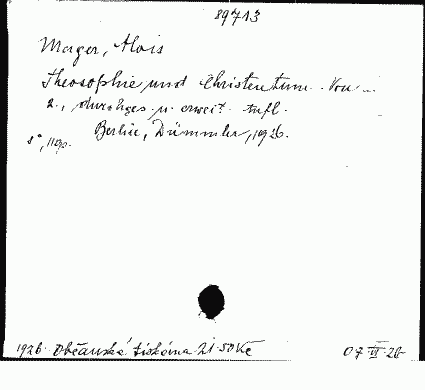 89713
Mager, Alois
Theosophie und Christentum. Von ...
2., durchges. u. erweit. Aufl.
Berlin, Dümmler, 1926.
8°, 119p.
1926 Občanská tiskárna 21.50 Kč 07 VI 26